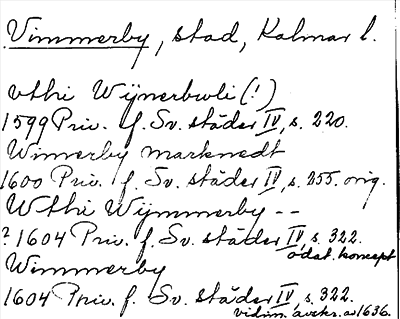 Vimmerby, stad, Kalmar l.
vthi Wijnerbwli (!)
1599 Priv. f. Sv. städer IV, s. 220.
Wimerby marknedt
1600 Priv. f. Sv. städer IV, s. 255. orig.
Wthi Wijmmerby --
? 1604 Priv. f. Sv. städer IV, s. 322.
odat. koncept
Wimmerby
1604 Priv. f. Sv. städer IV, s. 322.
vidim. avskr. a 1636.